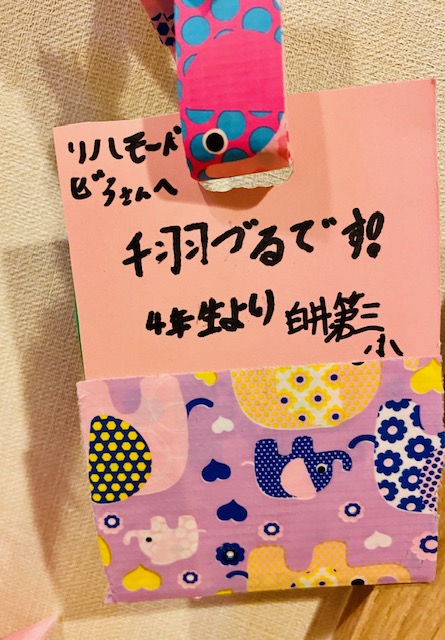 リハモード
ビラさんへ
千羽づるです!
4年生より 白井第三
小